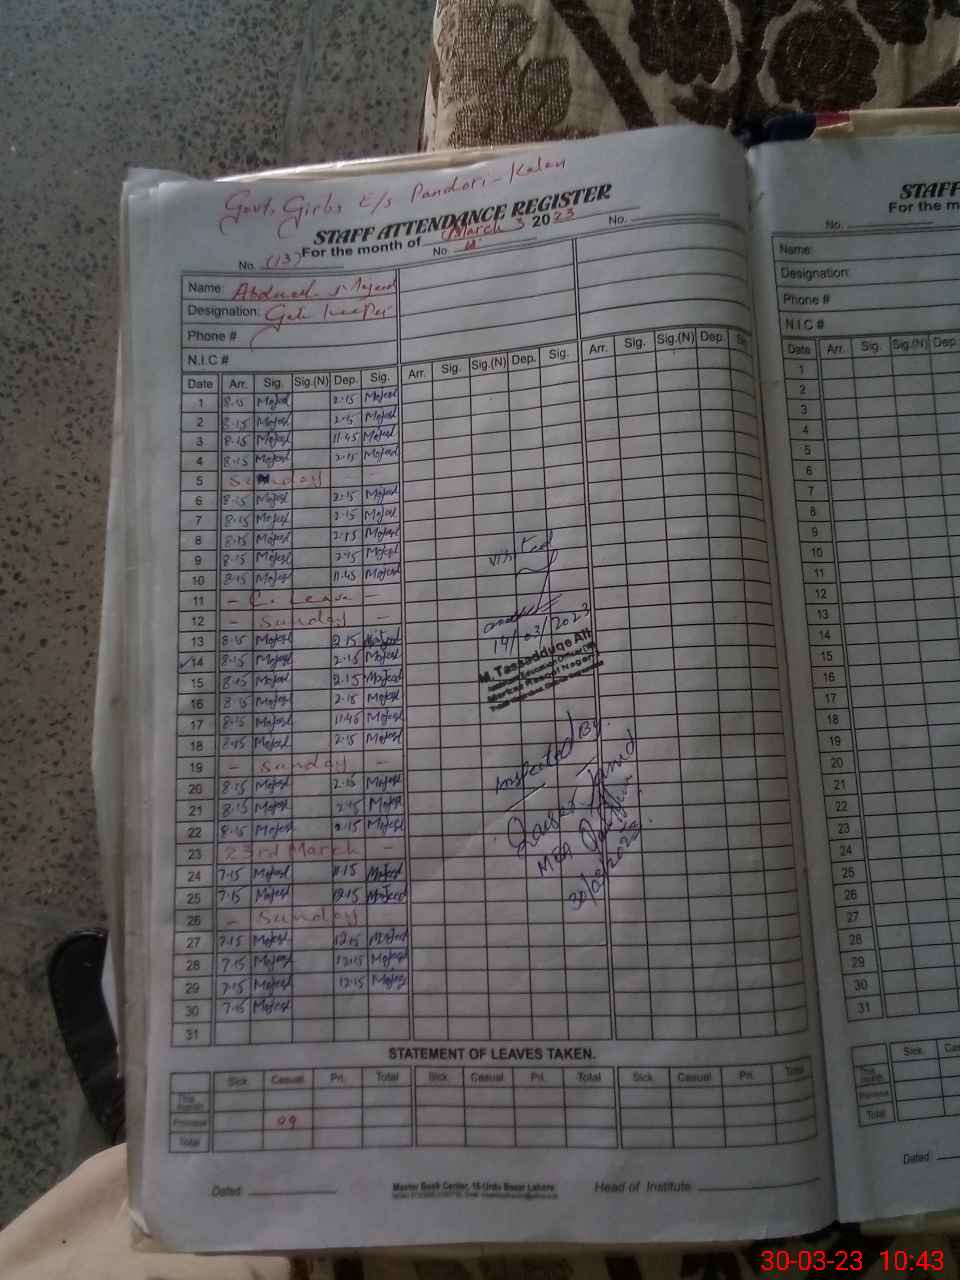 Govt. Girls E/s Pandori-Kalan
STAFF ATTENDANCE REGISTER
For the month of March 3 2023
No. (13) No. No.
Name: Abdul Majeed
Designation: Gate keeper
Phone #
N.I.C #
Date Arr. Sig. Sig.(N) Dep. Sig. Arr. Sig. Sig.(N) Dep. Sig. Arr. Sig. Sig.(N) Dep.
1 8.15 Majeed 2.15 Majeed
2 8.15 Majeed 2.15 Majeed
3 8.15 Majeed 11.45 Majeed
4 8.15 Majeed 2.15 Majeed
5 Sunday -
6 8.15 Majeed 2.15 Majeed
7 8.15 Majeed 2.15 Majeed
8 8.15 Majeed 2.15 Majeed
9 8.15 Majeed 2.15 Majeed
10 8.15 Majeed 11.45 Majeed
11 - C. Leave -
12 - Sunday -
13 8.15 Majeed 2.15 Majeed
14 8.15 Majeed 2.15 Majeed
15 8.15 Majeed 2.15 Majeed
16 8.15 Majeed 2.15 Majeed
17 8.15 Majeed 11.45 Majeed
18 8.15 Majeed 2.15 Majeed
19 - Sunday -
20 8.15 Majeed 2.15 Majeed
21 8.15 Majeed 2.15 Majeed
22 8.15 Majeed 2.15 Majeed
23 23rd March -
24 7.15 Majeed 11.15 Majeed
25 7.15 Majeed 12.15 Majeed
26 - Sunday
27 7.15 Majeed 12.15 Majeed
28 7.15 Majeed 12.15 Majeed
29 7.15 Majeed 12.15 Majeed
30 7.15 Majeed
31
Visited
14/03/2023
M. Tassadduqe Ali
Inspected By.
Qaiser Javid
MEA
30/03/2023
STATEMENT OF LEAVES TAKEN.
Sick. Casual Pri. Total Sick. Casual Pri. Total Sick. Casual Pri. Total
This month
Previous 09
Total
Dated
Master Book Center, 16-Urdu Bazar Lahore
Head of Institute.
STAFF
For the m
No.
Name:
Designation:
Phone #
N.I.C #
Date Arr. Sig. Sig.(N) Dep
1
2
3
4
5
6
7
8
9
10
11
12
13
14
15
16
17
18
19
20
21
22
23
24
25
26
27
28
29
30
31
Sick. Ca
This month
Previous
Total
Dated:
30-03-23 10:43